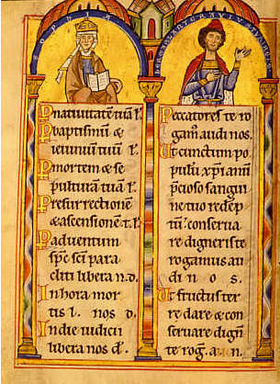 P natiuitatē tuā l'.
P baptismū &
ieiuniū tuū l'.
P mortem & se
pulturā tuā l'.
P resurrectionē
& ascensionē t. l'.
P aduentum
sp̄c sc̄i para
cliti libera n. d.
In hora mor
tis l. nos d.
In die iudicii
libera nos d̄.
Peccatores te ro
gam' audi nos.
Ut cunctum po
pulū xp̄ianū
p̄cioso sangui
ne tuo redēp
tū conserua
re digneris te
rogamus au
di n o s.
Ut fructus ter
re dare & con
seruare dign̄
te rog. a. n.